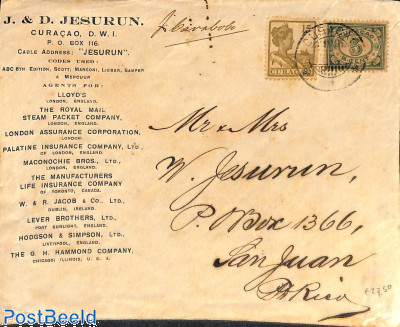 J. & D. JESURUN.
CURAÇAO, D. W. I.
P. O. BOX 116.
CABLE ADDRESS: "JESURUN".
CODES USED:
ABC 5TH EDITION, SCOTT, MARCONI, LIEBER, SAMPER
& MERCUUR
AGENTS FOR:
LLOYD'S
LONDON, ENGLAND.
THE ROYAL MAIL
STEAM PACKET COMPANY,
LONDON, ENGLAND.
LONDON ASSURANCE CORPORATION.
LONDON
PALATINE INSURANCE COMPANY, LTD.,
OF LONDON, ENGLAND.
MACONOCHIE BROS., LTD.,
LONDON, ENGLAND.
THE MANUFACTURERS
LIFE INSURANCE COMPANY
OF TORONTO, CANADA.
W. & R. JACOB & CO., LTD.,
DUBLIN, IRELAND.
LEVER BROTHERS, LTD.,
PORT SUNLIGHT, ENGLAND.
HODGSON & SIMPSON, LTD.,
LIVERPOOL, ENGLAND.
THE G. H. HAMMOND COMPANY,
CHICAGO ILLINOIS, U. S. A.
Carabobo
15
CURAÇAO
5
Mr & Mrs
W. Jesurun,
P.O Box 1366,
San Juan
P. Rico
€27,50
PostBeeld